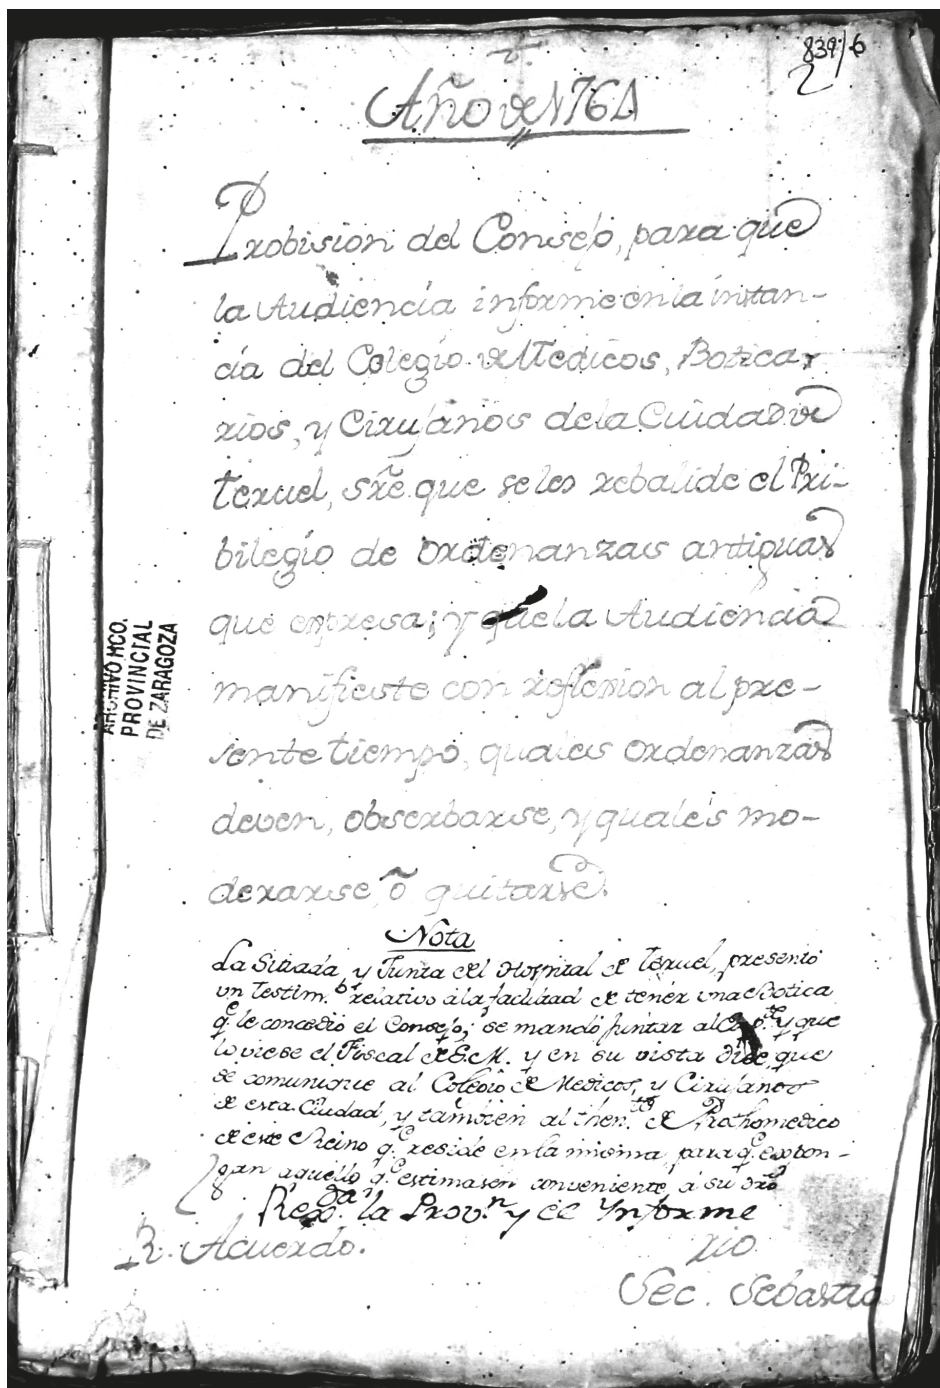 839/6
2
Año de 1764
Probision del Consejo, para que
la Audiencia informe en la instan-
cia del Colegio de Medicos, Botica-
rios, y Cirujanos de la Ciudad de
Teruel, sre. que se les rebalide el Pri-
bilegio de ordenanzas antiguas
que expresa; y que la Audiencia
manifieste con reflexion al pre-
sente tiempo, quales ordenanzas
deven, obserbarse, y quales mo-
derarse, ò quitarse.
Nota
La Sitiada, y Junta del Hospital de Teruel, presentò
un Testim.º relativo à la facultad de tener una Botica
q.e le concediò el Consejo; se mandò juntar al y que
lo viese el Fiscal de S.M. y en su vista dice, que
se comunique al Colegio de Medicos, y Cirujanos
de esta Ciudad, y tambien al then.te de Prothomedico
de este Reino q.e reside en la misma, para q.e expon-
gan aquello q.e estimasen conveniente à su dro
la Prov.n y el Ynforme
R. Acuerdo.
rio
Sec. Sebastia
ARCHIVO HCO.
PROVINCIAL
DE ZARAGOZA